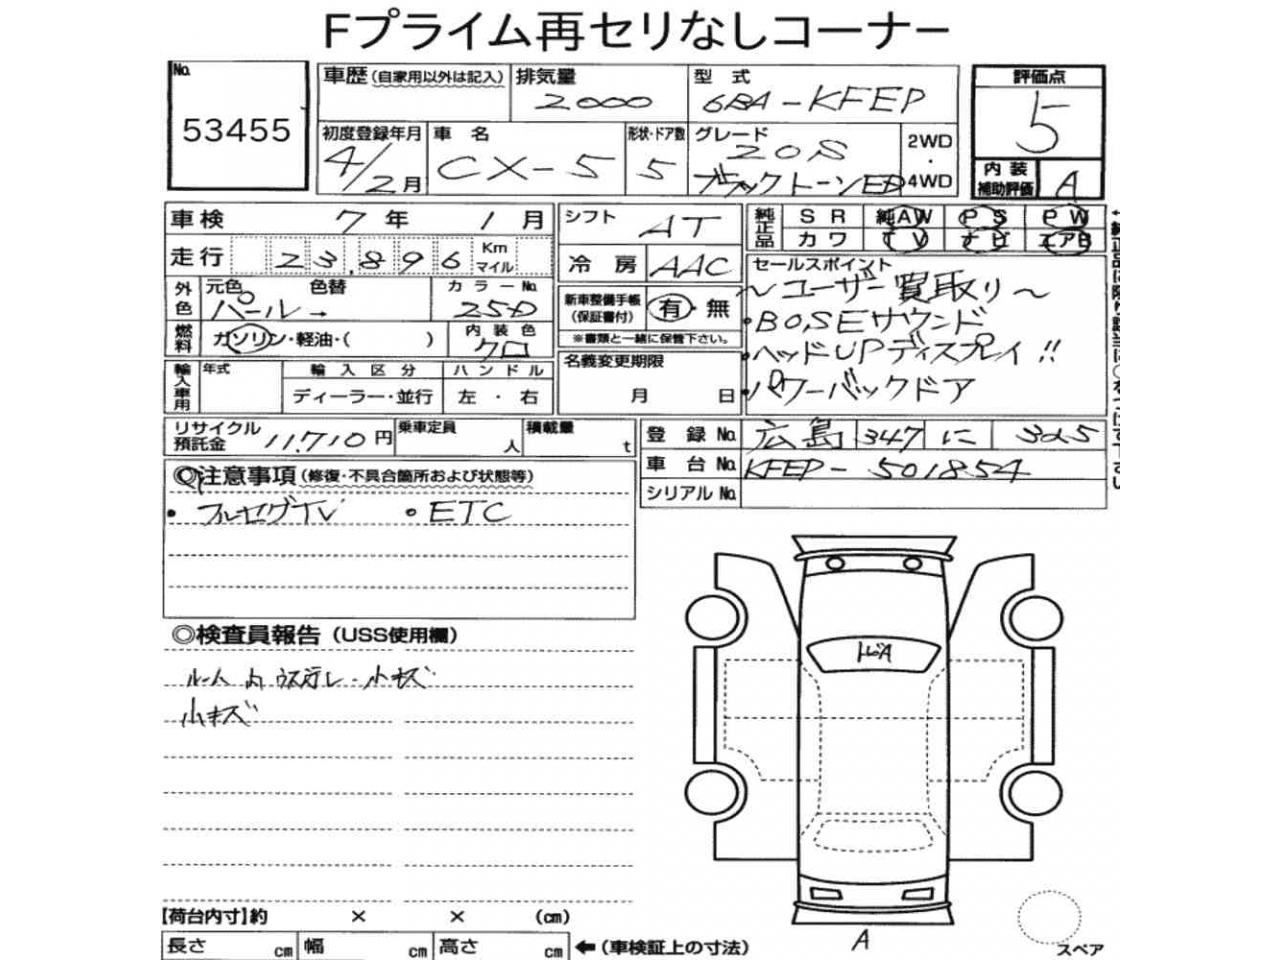 Fプライム再セリなしコーナー
No.
53455
車歴（自家用以外は記入）
排気量
2000
型 式
6BA-KFEP
評価点
5
初度登録年月
4/2月
車 名
CX-5
形状・ドア数
5
グレード
20S
ブラックトーンED
2WD
・
4WD
内 装
補助評価
A
車検 7年 1月
シフト AT
純正品
S R 純AW P S P W
カ ワ T V ナ ビ エアB
走行 23,896 Km
マイル
冷 房 AAC
セールスポイント
～ユーザー買取り～
・BOSEサウンド
・ヘッドUPディスプレイ!!
・パワーバックドア
外色
元色 色替
パール→
カラーNo.
25D
新車整備手帳
（保証書付）
有・無
※書類と一緒に保管下さい。
燃料
ガソリン・軽油・( )
内装色
クロ
名義変更期限
月 日
輸入車用
年式
輸 入 区 分
ディーラー・並行
ハ ン ド ル
左 ・ 右
リサイクル
預託金 11,710円
乗車定員
人
積載量
t
登 録 No. 広島 347 に 325
車 台 No. KFEP-501854
シリアル No.
◎注意事項（修復・不具合箇所および状態等）
・フルセグTV ・ETC
◎検査員報告（USS使用欄）
ルーム内ウス汚レ・小キズ
小キズ
A
【荷台内寸】約 × × (cm)
長さ cm 幅 cm 高さ cm ←（車検証上の寸法）
スペア